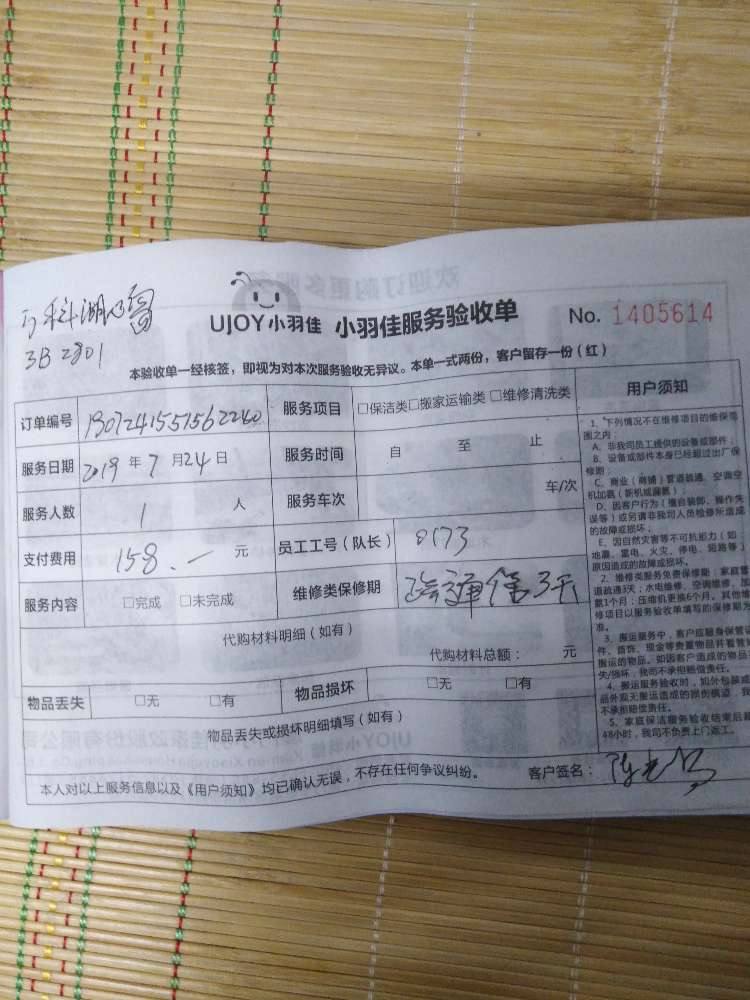 万科湖心岛
3B 2801
UJOY小羽佳 小羽佳服务验收单 No. 1405614
本验收单一经核签，即视为对本次服务验收无异议。本单一式两份，客户留存一份（红）
订单编号 服务项目 □保洁类□搬家运输类□维修清洗类
服务日期 2019 年 7 月 24 日 服务时间 自 至 止
服务人数 1 人 服务车次 车/次
支付费用 158.— 元 员工工号（队长） 0173
服务内容 □完成 □未完成 维修类保修期 疏通保3天
代购材料明细（如有）
代购材料总额： 元
物品丢失 □无 □有 物品损坏 □无 □有
物品丢失或损坏明细填写（如有）
本人对以上服务信息以及《用户须知》均已确认无误，不存在任何争议纠纷。 客户签名：
用户须知
1、下列情况不在维修项目的维保范
围之内：
A、非我司员工提供的设备或部件；
B、设备或部件本身已经超过出厂保
修期；
C、商业（商铺）管道疏通、空调空
机加氨（新机或漏氨）；
D、因客户行为（擅自装卸、操作失
误等）或另请非我司人员检修所造成
的故障或损坏；
E、因自然灾害等不可抗拒力（如
地震、雷电、火灾、停电、短路等）
原因造成的故障或损坏。
2、维修类服务免费保修期：家庭管
道疏通3天；水电维修、空调维修、加
氨1个月；压缩机更换6个月。其他维
修项目以服务验收单填写的保修期为
准。
3、搬运服务中，客户应随身保管证
件、首饰、现金等贵重物品并看管好
搬运的物品。如因客户造成的物品丢
失/损坏，我司不承担赔偿责任。
4、搬运服务验收时，如外包装或
品外观无搬运造成的损伤痕迹，我
不承担赔偿责任。
5、家庭保洁服务验收结束后超
48小时，我司不负责上门返工。